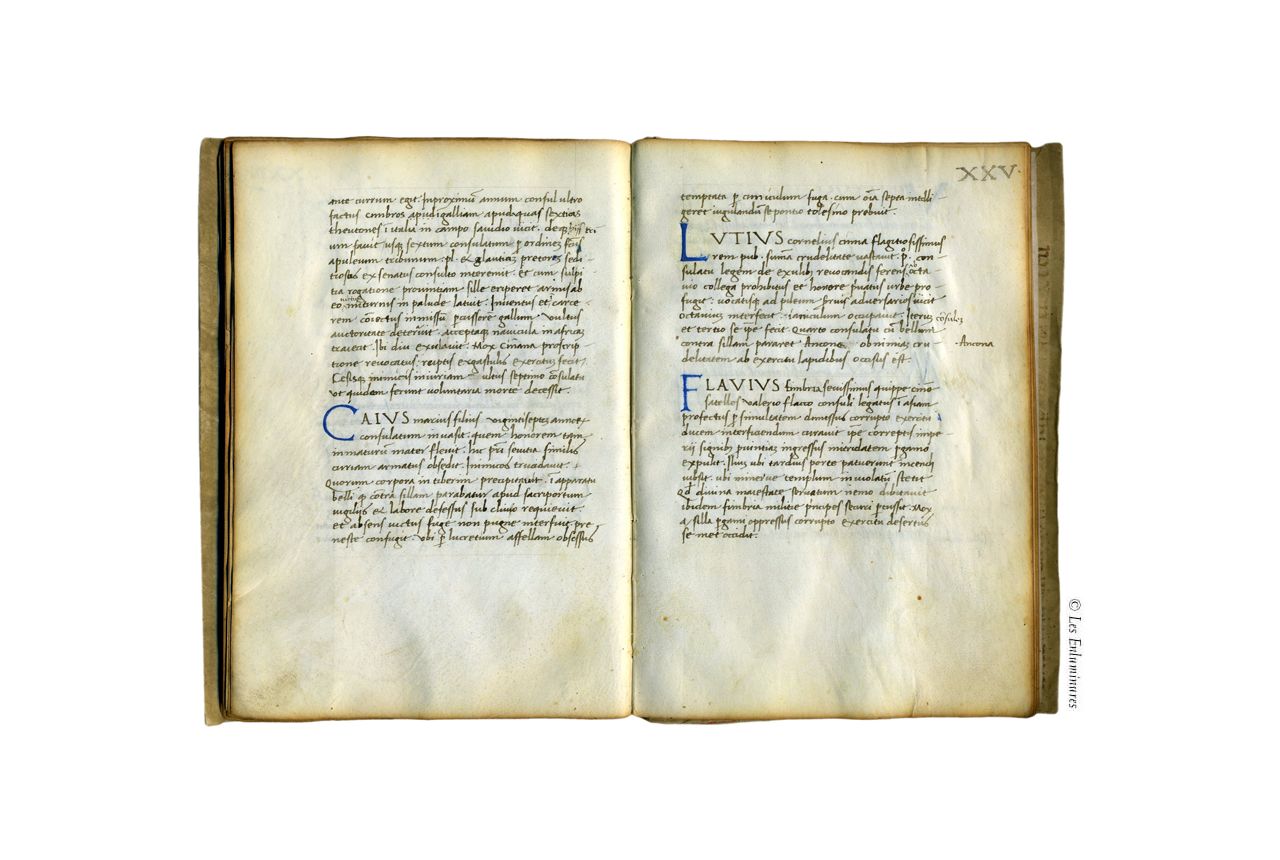 ante currum egit. Inproximū annum consul ultro
factus cimbros apud galliam apud aquas sextias
theutones i italia in campo saudio vicit.
um fuit usq; sextum consulatum p ordinez
apuleum tribunum .pl. & glautiaz pretorez sedi
tiosos ex senatus consulto interemit. et cum sulpi
tia rogatione provintiam sille eriperet armis ab
eo victus minturnis in palude latuit. Inventus et carce
rem coniectus inmissū pcussore gallum vultus
auctoritate deterruit. Acceptaq; navicula in africaz
traiecit. Ibi diu exulavit. Mox Cinnana proscrip
tione revocatus ruptis ergastulis exercituz fecit.
Cesisq; inimicis iniuriam ultus septimo cōsulatu
ut quidem ferunt voluntaria morte decessit.
CAIUS marcius filius viginti septez annoz
consulatum invasit. quem honorem tam
inmaturū mater flevit. hic pri sevitia similis
curiam armatus obsedit. Inimicos trucidavit.
Quorum corpora in tiberim precipitavit. i apparatu
belli q̄ contra sillam parabatur apud sacriportum
vigiliis et labore defessus sub divo requievit.
et absens victus fuge non pugne interfuit. pre
neste confugit. Ubi p lucretium affellam obsessus
XXV.
temptata p cuniculum fuga. cum oīa septa intelli
geret iugulandū se pontio telesino prebuit.
LUTIUS cornelius cinna flagitiosissimus
rem pub. sūma crudelitate vastavit. pº. con
sulatu legem de exulib; revocandis ferens ab octa
vio collega prohibitus et honore pvatus urbe pro
fugit. vocatisq; ad pileum servis adversarios vicit
octavium interfecit. ianiculum occupavit. Iterū cōsulez
et tertio se ipe fecit. Quarto consulatu cū bellum
contra sillam pararet Ancone ob nimiaz cru
Ancona
delitatem ab exercitu lapidibus occisus est.
FLAVIUS fimbria sevissimus quippe cinne
satelles valerio flacco consuli legatus i asiam
profectus p simultatem dimissus corrupto exercitu
ducem interficiendum curavit ipe correptis impe
rii signis puintiaz ingressus mitridatem pgamo
expulit. Ilium ubi tardius porte patuerunt incendi
iussit. ubi minerve templum inviolatū stetit
Qd divina maiestate servatum nemo dubitavit
ibidem fimbria militie principes securi pcussit. Mox
a silla pgami oppressus corrupto exercitu desertus
se met occidit.
© Les Enluminures